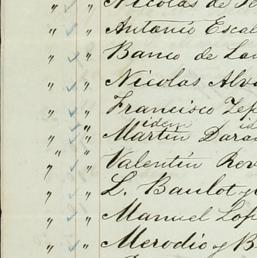 " " Nicolas de
" " Antonio Escal
" " Banco de Lon
" " Nicolas Alva
" " Francisco Zep
" " idem id
" " Martin Daran
" " Valentin Rov
" " L. Baulot y
" " Manuel Lop
" " Merodio y B